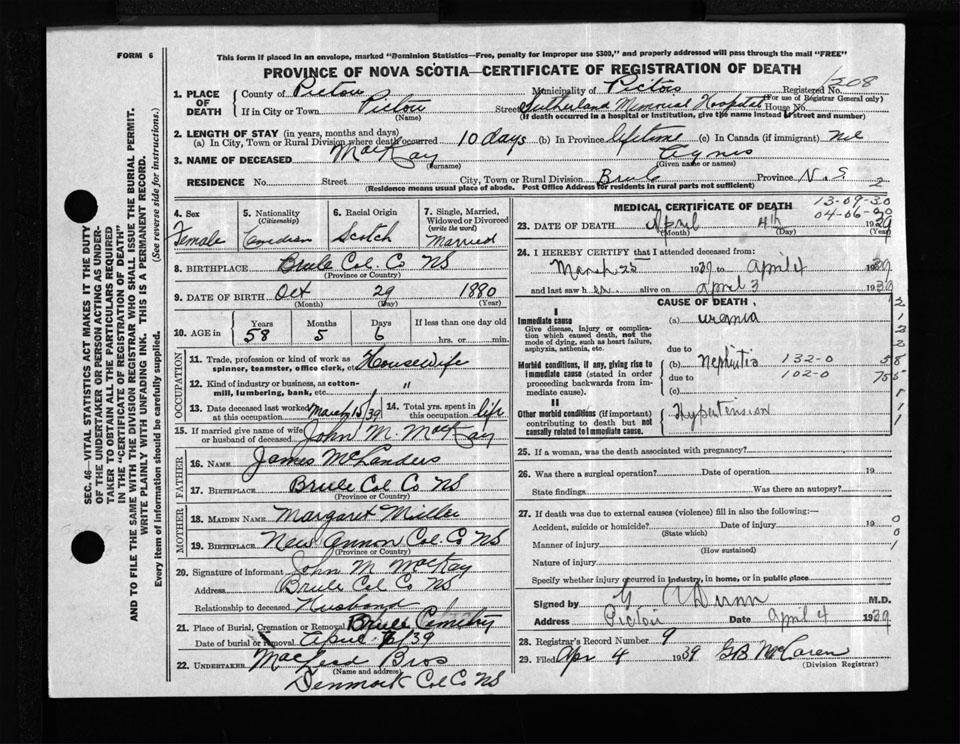 FORM 6
This form if placed in an envelope, marked "Dominion Statistics—Free, penalty for improper use $300," and properly addressed will pass through the mail "FREE"
PROVINCE OF NOVA SCOTIA—CERTIFICATE OF REGISTRATION OF DEATH
1208
1. PLACE OF DEATH
County of Pictou Municipality of Pictou Registered No.
(For use of Registrar General only)
If in City or Town Pictou Street Sutherland Memorial Hospital House No.
(Name) (If death occurred in a hospital or institution, give the name instead of street and number)
2. LENGTH OF STAY (in years, months and days)
(a) In City, Town or Rural Division where death occurred 10 days (b) In Province lifetime (c) In Canada (if immigrant)
3. NAME OF DECEASED MacKay Agnes
(Surname) (Given name or names)
RESIDENCE No. Street City, Town or Rural Division Brule Province N.S
(Residence means usual place of abode. Post Office Address for residents in rural parts not sufficient) 2
4. Sex Female
5. Nationality (Citizenship) Canadian
6. Racial Origin Scotch
7. Single, Married, Widowed or Divorced (write the word) Married
8. BIRTHPLACE Brule Col. Co NS
(Province or Country)
9. DATE OF BIRTH Oct 29 1880
(Month) (Day) (Year)
10. AGE in Years Months Days If less than one day old
58 5 6 hrs. or min.
OCCUPATION
11. Trade, profession or kind of work as spinner, teamster, office clerk, etc. Housewife
12. Kind of industry or business, as cotton-mill, lumbering, bank, etc. "
13. Date deceased last worked at this occupation March 15/39
14. Total yrs. spent in this occupation life
15. If married give name of wife or husband of deceased John M. MacKay
FATHER
16. NAME James McLanders
17. BIRTHPLACE Brule Col Co NS
(Province or Country)
MOTHER
18. MAIDEN NAME Margaret Miller
19. BIRTHPLACE New Annon Col. Co NS
(Province or Country)
20. Signature of informant John M MacKay
Address Brule Col Co NS
Relationship to deceased Husband
21. Place of Burial, Cremation or Removal Brule Cemetry
Date of burial or removal April 6/39
22. UNDERTAKER MacLeod Bros
(Name and address)
Denmark Col Co NS
MEDICAL CERTIFICATE OF DEATH
13-09-30
04-06-
23. DATE OF DEATH April 4th 1939
(Month) (Day) (Year)
24. I HEREBY CERTIFY that I attended deceased from:
March 25 1939 to April 4 1939
and last saw h er alive on April 3 1939
CAUSE OF DEATH
I
Immediate cause
Give disease, injury or complication which caused death, not the mode of dying, such as heart failure, asphyxia, asthenia, etc.
(a) uremia
due to
Morbid conditions, if any, giving rise to immediate cause (stated in order proceeding backwards from immediate cause).
(b) Nephritis 132-0
due to 102-0
(c)
II
Other morbid conditions (if important) contributing to death but not causally related to immediate cause.
Hypertension
25. If a woman, was the death associated with pregnancy?
26. Was there a surgical operation? Date of operation 19
State findings Was there an autopsy?
27. If death was due to external causes (violence) fill in also the following:—
Accident, suicide or homicide? Date of injury 19
(State which)
Manner of injury
(How sustained)
Nature of injury
Specify whether injury occurred in industry, in home, or in public place
Signed by G A Dunn M.D.
Address Pictou Date April 4 1939
28. Registrar's Record Number 9
29. Filed Apr 4 1939 GB McCaren
(Division Registrar)
SEC. 46—VITAL STATISTICS ACT MAKES IT THE DUTY
OF THE UNDERTAKER OR PERSON ACTING AS UNDER-
TAKER TO OBTAIN ALL THE PARTICULARS REQUIRED
IN THE "CERTIFICATE OF REGISTRATION OF DEATH"
AND TO FILE THE SAME WITH THE DIVISION REGISTRAR WHO SHALL ISSUE THE BURIAL PERMIT.
WRITE PLAINLY WITH UNFADING INK. THIS IS A PERMANENT RECORD.
Every item of information should be carefully supplied. (See reverse side for instructions.)